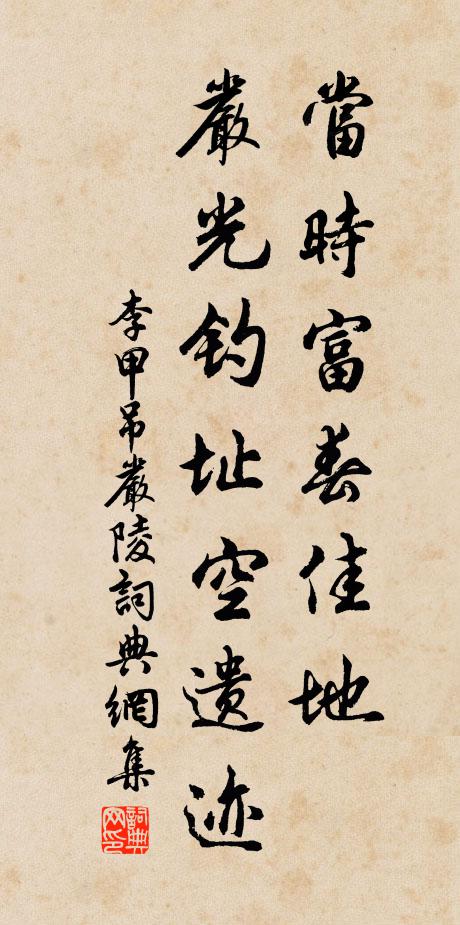 當時富春佳地
嚴光釣址空遺迹
李甲吊嚴陵詞典網集
詞典網印